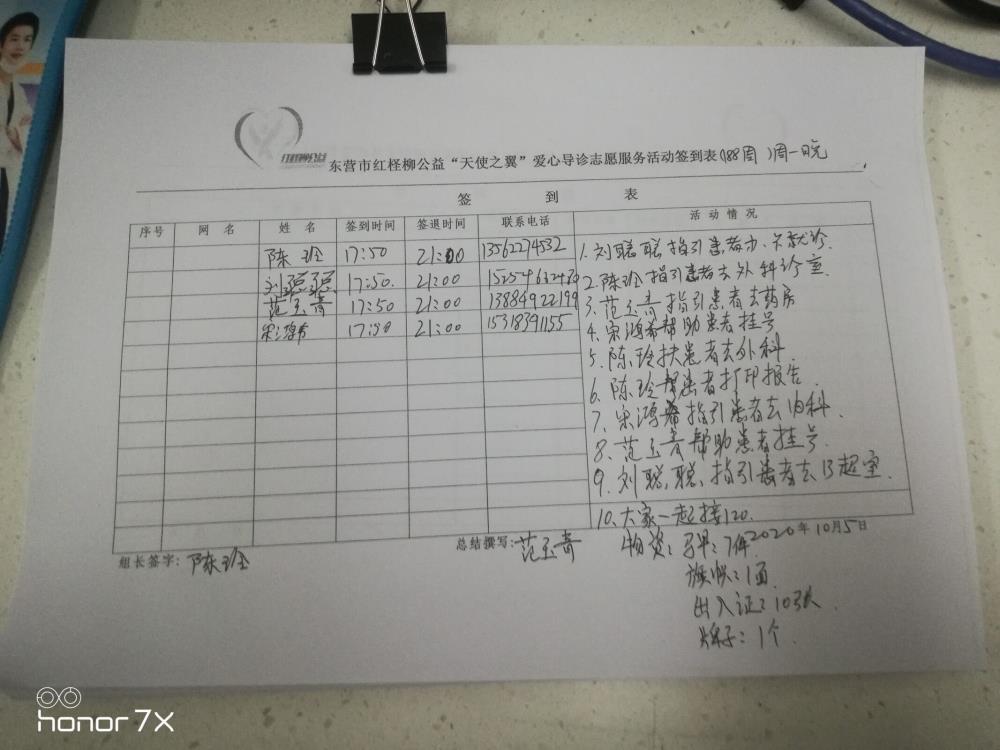 红柽柳公益
东营市红柽柳公益“天使之翼”爱心导诊志愿服务活动签到表(188周)周一晚
签 到 表
序号 网 名 姓 名 签到时间 签退时间 联系电话 活 动 情 况
陈玲 17:50 21:00 13562274532
刘聪聪 17:50. 21:00
范玉青 17:50 21:00 13884922199
宋鸿希 17:50 21:00 15318391155
1. 刘聪聪指引患者办卡就诊.
2. 陈玲指引患者去外科诊室
3. 范玉青指引患者去药房
4. 宋鸿希帮助患者挂号
5. 陈玲扶患者去外科
6. 陈玲帮患者打印报告.
7. 宋鸿希指引患者去内科.
8. 范玉青帮助患者挂号
9. 刘聪聪,指引患者去B超室.
10. 大家一起接120.
组长签字: 陈玲
总结撰写: 范玉青
2020年10月5日
物资: 马甲: 7件
旗帜: 1面
出入证: 10张.
牌子: 1个.
honor 7X